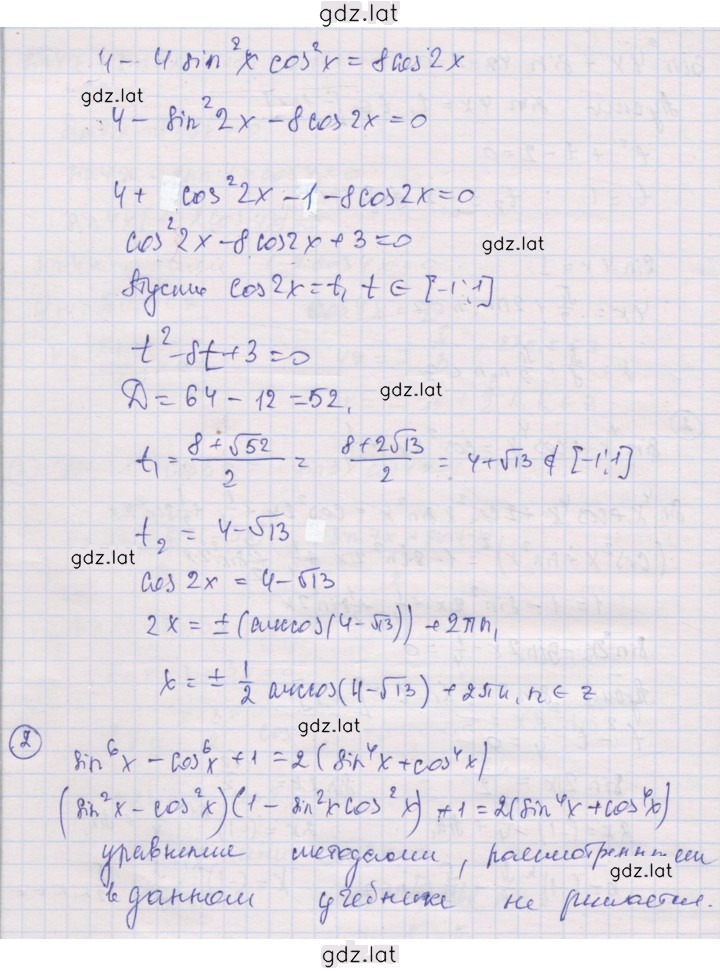 gdz.lat
4 - 4 sin²x cos²x = 8cos2x
gdz.lat
4 - sin²2x - 8cos2x = 0
4 + cos²2x - 1 - 8cos2x = 0
cos²2x - 8cos2x + 3 = 0
gdz.lat
Пусть cos2x = t, t ∈ [-1;1]
t² - 8t + 3 = 0
D = 64 - 12 = 52,
gdz.lat
t₁ = (8+√52)/2 = (8+2√13)/2 = 4+√13 ∉ [-1;1]
t₂ = 4-√13
gdz.lat
cos2x = 4-√13
2x = ±(arccos(4-√13)) + 2πn,
x = ± 1/2 arccos(4-√13) + 2πn, n ∈ z
gdz.lat
② sin⁶x - cos⁶x + 1 = 2(sin⁴x + cos⁴x)
(sin²x - cos²x)(1 - sin²x cos²x) + 1 = 2(sin⁴x + cos⁴x)
уравнение методами, рассмотренными
gdz.lat
в данном учебнике не решается.
gdz.lat